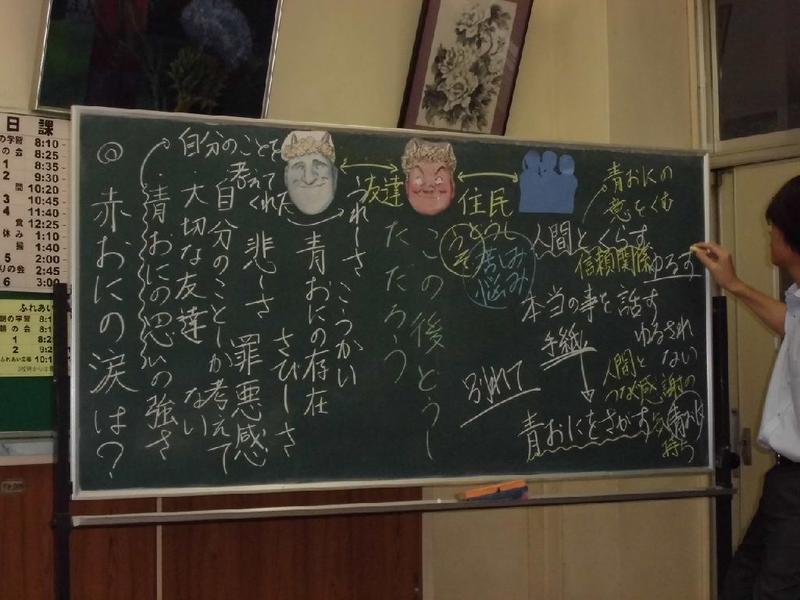 ◎赤おにの涙は？
・青おにの思いの強さ
・大切な友達
自分のことしか考えて
ない
悲しさ 罪悪感
さびしさ
自分のことを
考えて
くれた
青おにの存在
うれしさ
こうかい
友達
住民
この後どうし
ただろう
うそ
苦しみ
悩み
人間とくらす
青おにの
意をくむ
信頼関係
ゆるす
本当の事を話す
手紙
ゆるされ
ない
人間と
つなぐ
感謝の
気
持つ
別れて
青おにをさがす
日 課
の学習 8:10
の会 8:25
1 8:35
2 9:30
間 10:20
3 10:45
4 11:40
食 12:25
休み 1:10
掃 1:40
5 2:00
りの会 2:45
6 3:00
ふれあい
朝の学習
朝の会
1
2
ふれあい広場